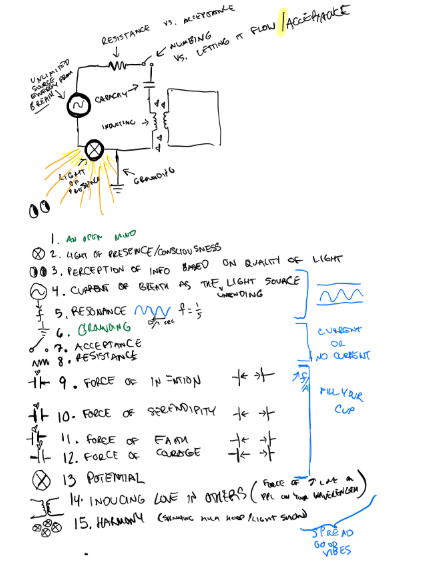 RESISTANCE VS. ACCEPTANCE
NUMBING
VS. LETTING IT FLOW /ACCEPTANCE
UNLIMITED
ENERGY FROM
BREATH
CAPACITY
INDUCTING
LIGHT
OF
PRESENCE
GROUNDING
1. AN OPEN MIND
2. LIGHT OF PRESENCE/CONSCIOUSNESS
3. PERCEPTION OF INFO BASED ON QUALITY OF LIGHT
4. CURRENT OF BREATH AS THE LIGHT SOURCE
UNENDING
5. RESONANCE f = 1/s
SEC
6. GROUNDING
7. ACCEPTANCE
8. RESISTANCE
CURRENT
OR
NO CURRENT
9. FORCE OF
10. FORCE OF SERENDIPITY
FILL YOUR
CUP
11. FORCE OF FAITH
12. FORCE OF COURAGE
13 POTENTIAL
14. INDUCING LOVE IN OTHERS (FORCE OF
PPL ON YOUR WAVELENGTH)
15. HARMONY
SPREAD
GOOD
VIBES